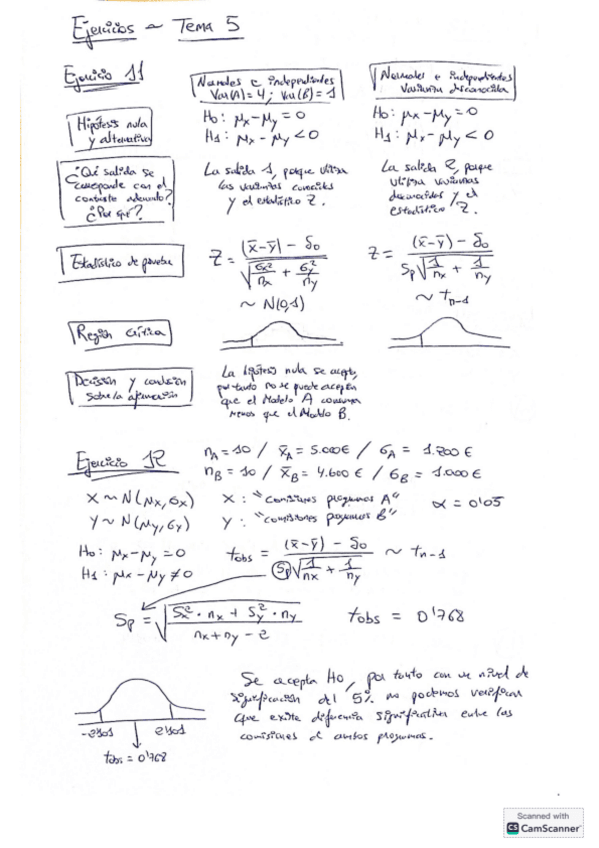 Ejercicios ~ Tema 5
Ejercicio 11
Normales e independientes
Var(A)=4; Var(B)=1
Normales e independientes
Varianza desconocida
Hipótesis nula
y alternativa
H0: μx-μy=0
H1: μx-μy<0
H0: μx-μy=0
H1: μx-μy<0
¿Qué salida se
corresponde con el
contraste adecuado?
¿Por qué?
La salida 1, porque utiliza
las varianzas conocidas
y el estadístico Z.
La salida 2, porque
utiliza varianzas
desconocidas y el
estadístico Z.
Estadístico de prueba
Z = (x̄-ȳ) - δ0 / √(σx²/nx + σy²/ny)
~ N(0,1)
Z = (x̄-ȳ) - δ0 / Sp√(1/nx + 1/ny)
~ tn-1
Región crítica
Decisión y conclusión
sobre la afirmación
La hipótesis nula se acepta,
por tanto no se puede aceptar
que el Modelo A consuma
menos que el Modelo B.
Ejercicio 12
nA = 10 / x̄A = 5.000€ / σA = 1.200€
nB = 10 / x̄B = 4.600€ / σB = 1.000€
X ~ N(μx, σx)
X: "comisiones programas A"
α = 0'05
Y ~ N(μy, σy)
Y: "comisiones programas B"
H0: μx-μy=0
H1: μx-μy≠0
tobs = (x̄-ȳ) - δ0 / Sp√(1/nx + 1/ny) ~ tn-1
Sp = √(Sx²·nx + Sy²·ny / nx+ny-2)
tobs = 0'768
Se acepta H0, por tanto con un nivel de
significación del 5% no podemos verificar
que existe diferencia significativa entre las
comisiones de ambos programas.
-2'101
2'101
tobs = 0'768
Scanned with
CS CamScanner